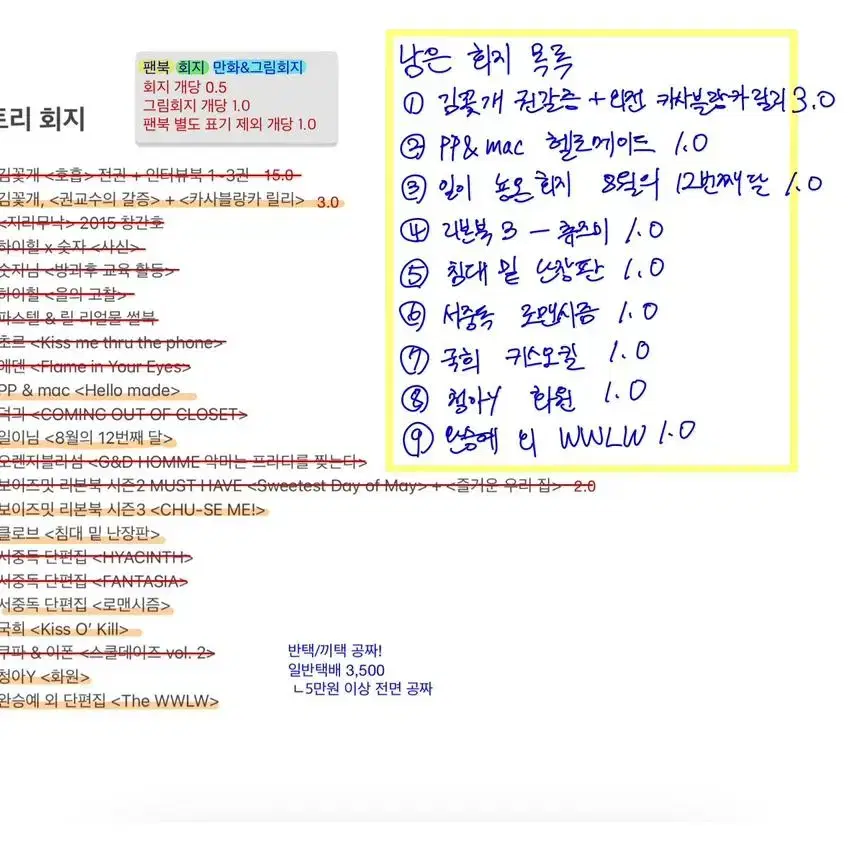 팬북 회지 만화&그림회지
회지 개당 0.5
그림회지 개당 1.0
팬북 별도 표기 제외 개당 1.0
트리 회지
김꽃개 <호흡> 전권 + 인터뷰북 1-3권 15.0
김꽃개, <권교수의 갈증> + <카사블랑카 릴리> 3.0
<지리무낙> 2015 창간호
하이힐 x 숫자 <사신>
숫자님 <방과후 교육 활동>
하이힐 <을의 고찰>
파스텔 & 릴 리얼물 썰북
초르 <Kiss me thru the phone>
에덴 <Flame in Your Eyes>
PP & mac <Hello made>
덕과 <COMING OUT OF CLOSET>
일이님 <8월의 12번째 달>
오렌지블리섬 <G&D HOMME 악마는 프라다를 찢는다>
보이즈밋 리본북 시즌2 MUST HAVE <Sweetest Day of May> + <즐거운 우리 집> 2.0
보이즈밋 리본북 시즌3 <CHU-SE ME!>
클로브 <침대 밑 난장판>
서중독 단편집 <HYACINTH>
서중독 단편집 <FANTASIA>
서중독 단편집 <로맨시즘>
국희 <Kiss O' Kill>
쿠파 & 이폰 <스쿨데이즈 vol. 2>
청아Y <화원>
완승예 외 단편집 <The WWLW>
남은 회지 목록
① 김꽃개 권갈증 + 외전 카사블랑카 릴리 3.0
② PP & mac 헬로메이드 1.0
③ 일이 뇽온회지 8월의 12번째 달 1.0
④ 리본북 3 - 츄즈미 1.0
⑤ 침대 밑 난장판 1.0
⑥ 서중독 로맨시즘 1.0
⑦ 국희 키스오킬 1.0
⑧ 청아Y 화원 1.0
⑨ 완승예 외 WWLW 1.0
반택/끼택 공짜!
일반택배 3,500
ㄴ5만원 이상 전면 공짜